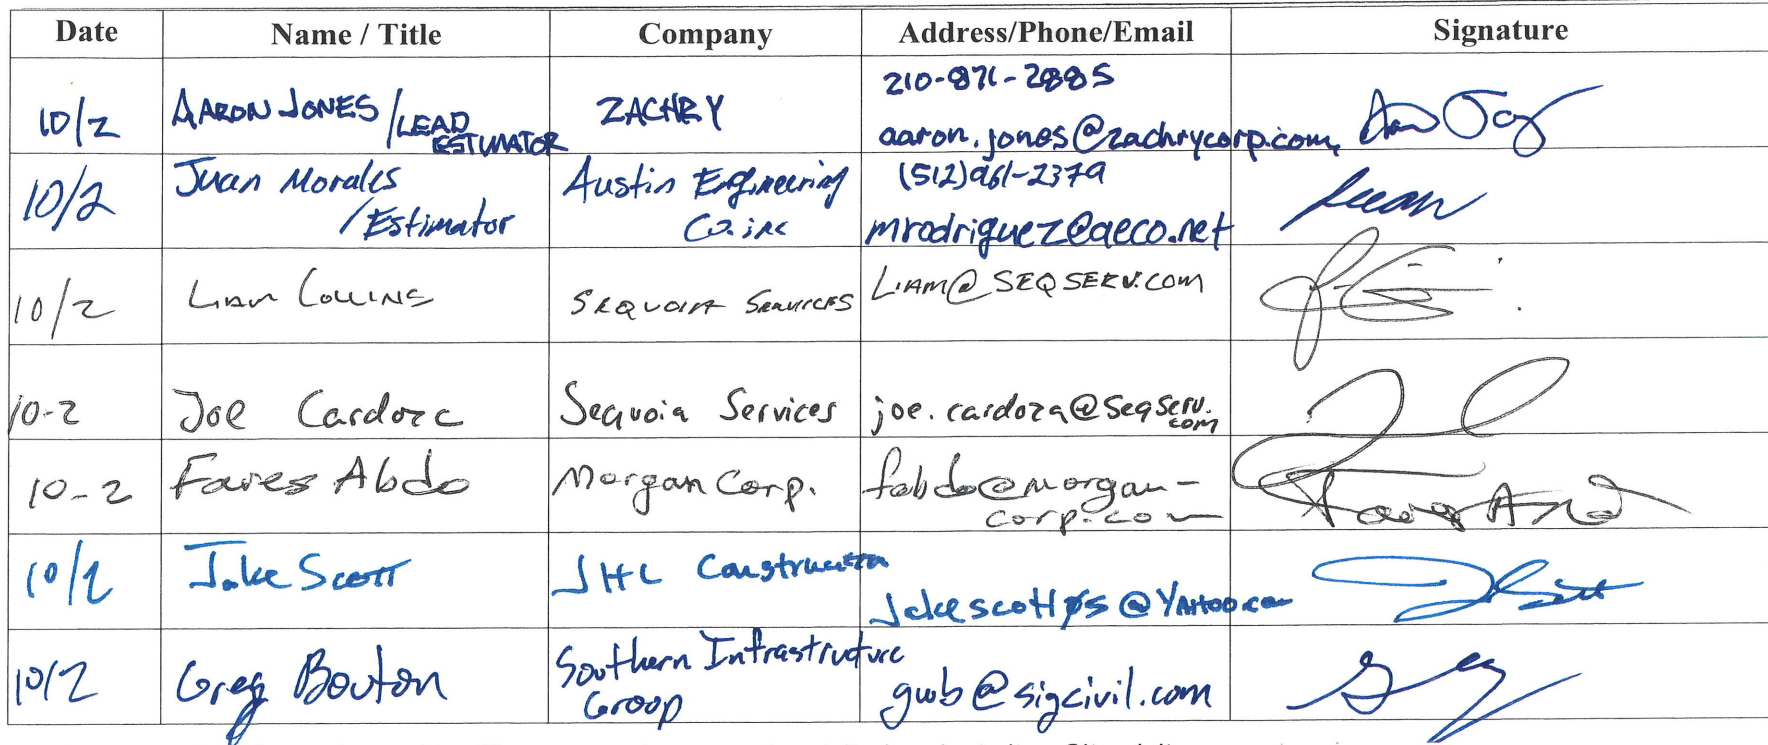 Date Name / Title Company Address/Phone/Email Signature
210-871-2885
10/2 AARON JONES /LEAD ESTIMATOR ZACHRY
aaron.jones@zachrycorp.com
Juan Morales Austin Engineering (512)961-2379
10/2 /Estimator Co. inc mrodriguez@aeco.net Juan
10/2 LIAM COLLINS SEQUOIA SERVICES LIAM@SEQSERV.COM
10-2 Joe Cardoza Sequoia Services joe.cardoza@seqserv.
com
10-2 Fares Abdo Morgan Corp. fabdo@morgan-
corp.com
10/2 Jake Scott JHL Construction
JakescottØs@YAHOO.com
10/2 Greg Bouton Southern Infrastructure
Group gwb@sigcivil.com